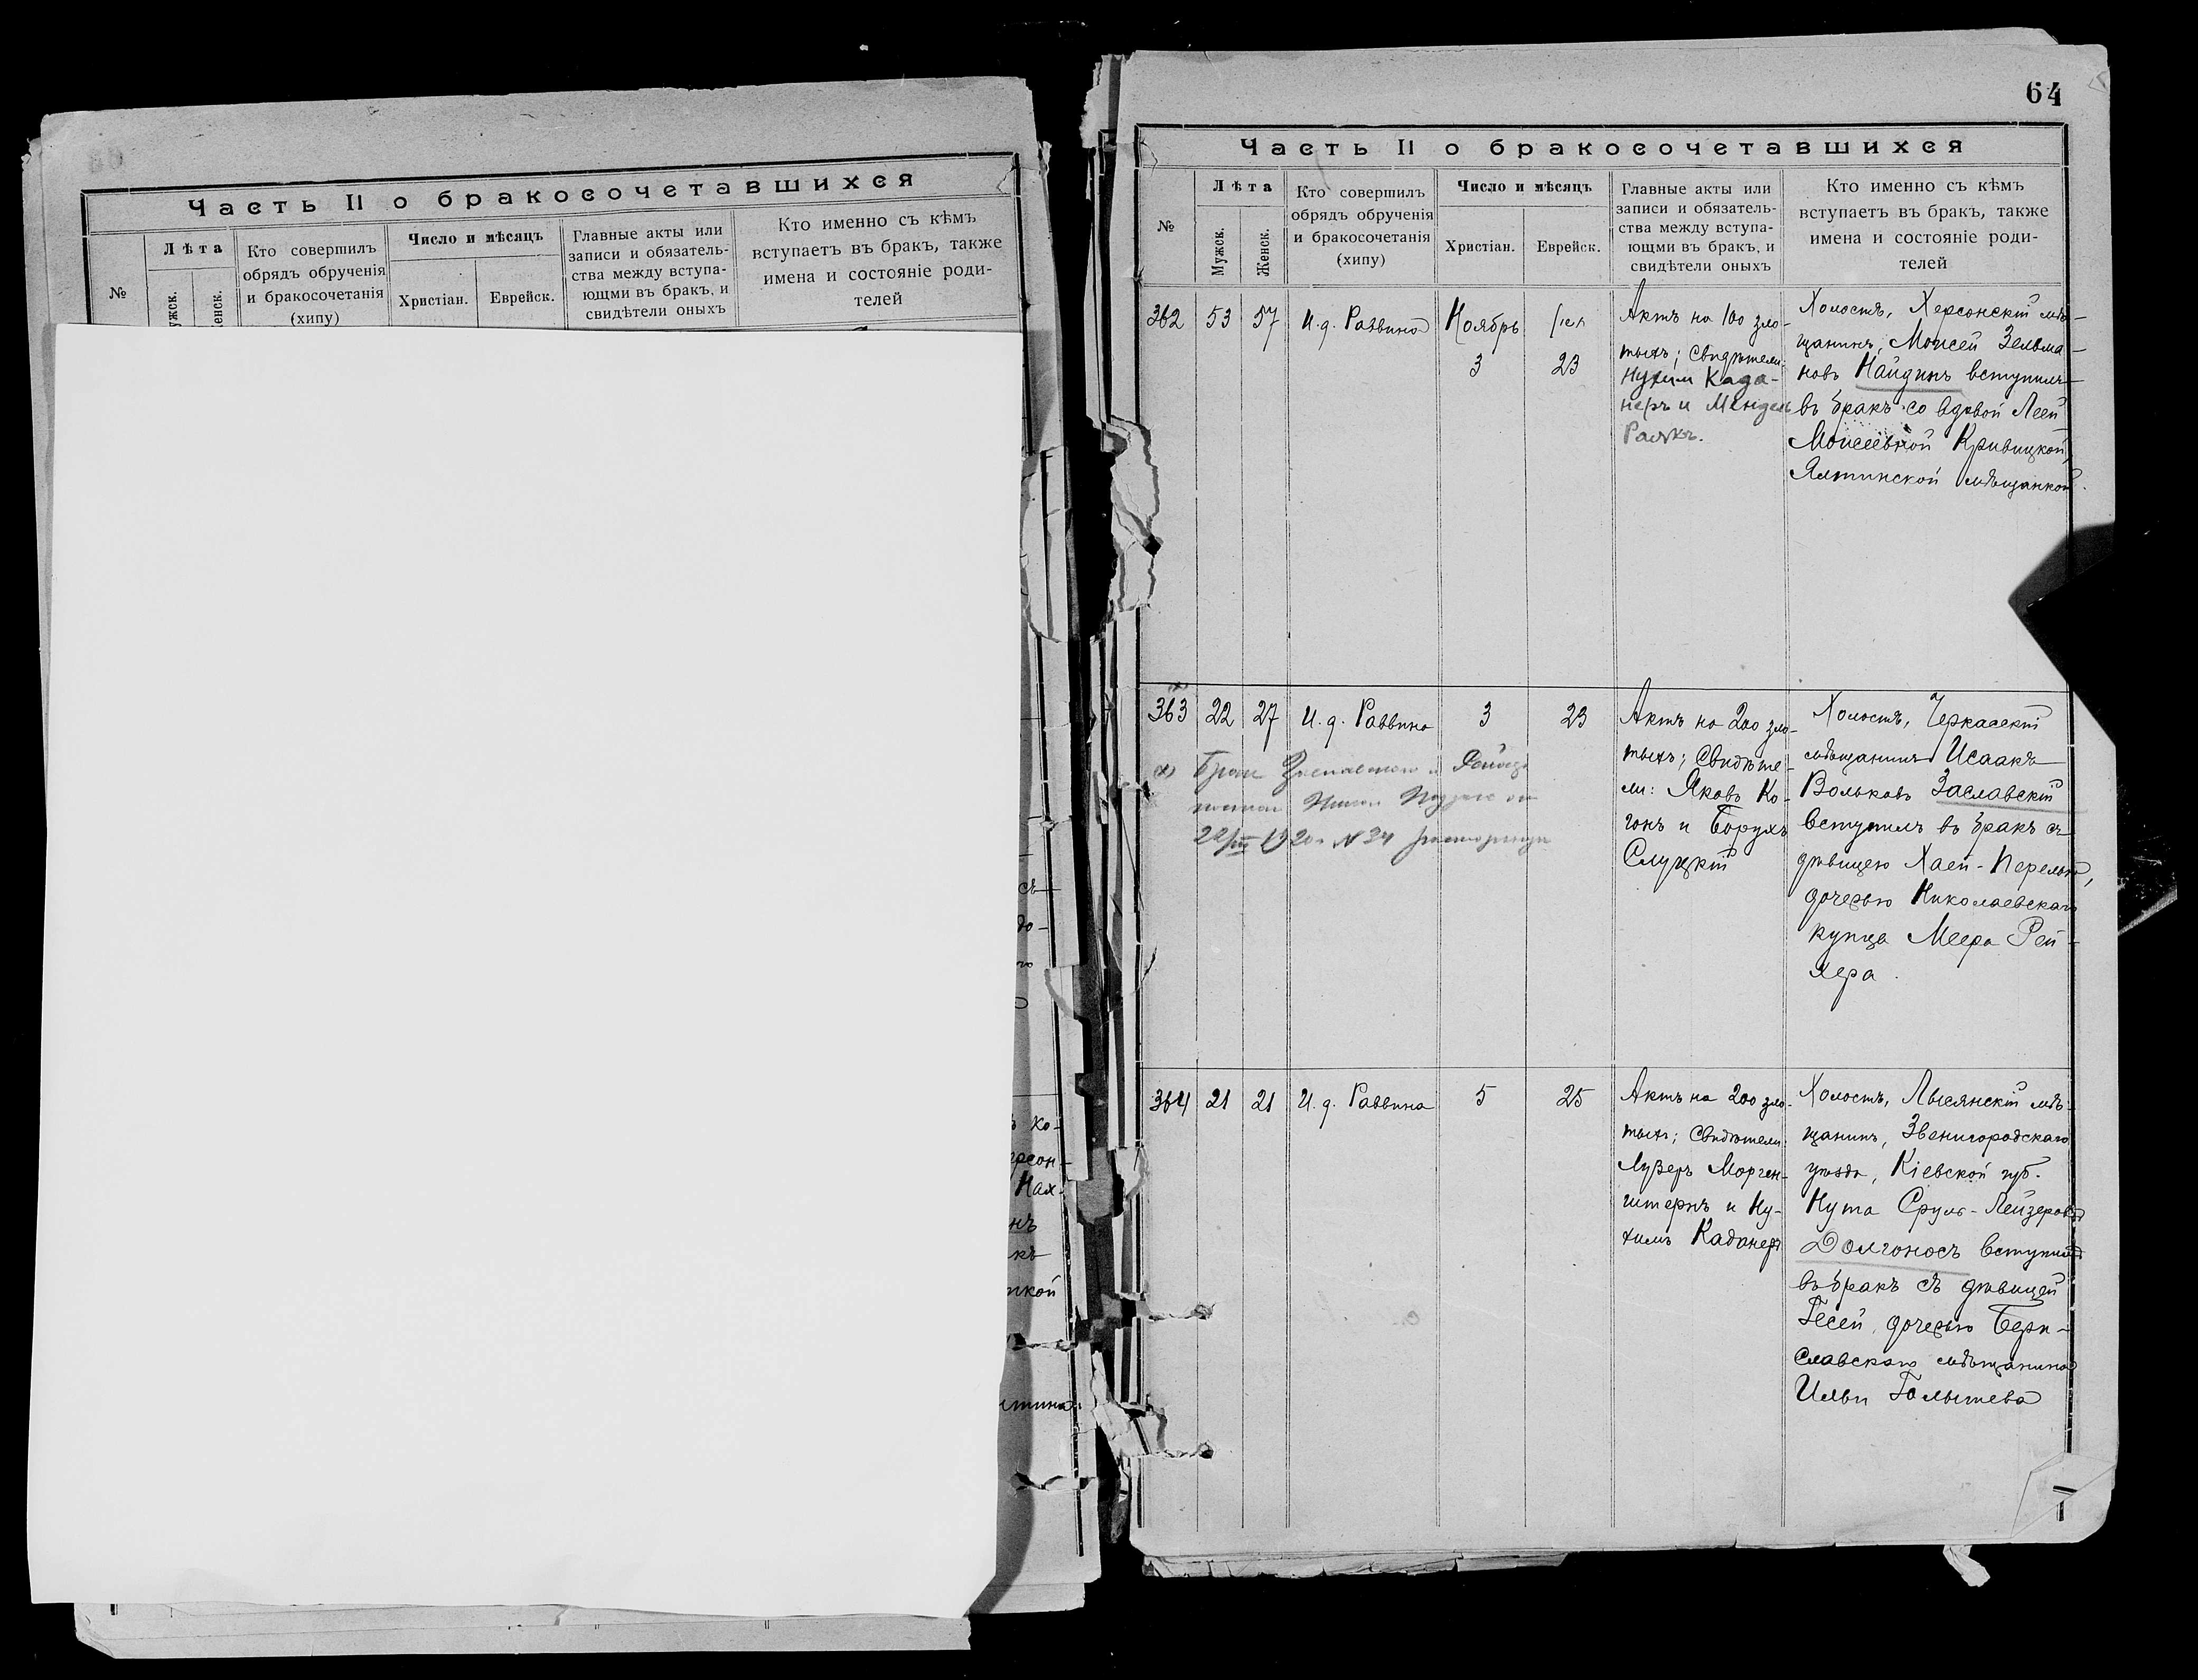 Часть II о бракосочетавшихся
№
Лѣта
Мужск.
Женск.
Кто совершилъ
обрядъ обрученія
и бракосочетанія
(хипу)
Число и мѣсяцъ
Христіан.
Еврейск.
Главные акты или
записи и обязатель-
ства между вступа-
ющми въ бракъ, и
свидѣтели оныхъ
Кто именно съ кѣмъ
вступаетъ въ бракъ, также
имена и состояніе роди-
телей
съ
до-
Хо-
ерсон-
Нах-
нъ
къ
ской
64
Часть II о бракосочетавшихся
№
Лѣта
Мужск.
Женск.
Кто совершилъ
обрядъ обрученія
и бракосочетанія
(хипу)
Число и мѣсяцъ
Христіан.
Еврейск.
Главные акты или
записи и обязатель-
ства между вступа-
ющми въ бракъ, и
свидѣтели оныхъ
Кто именно съ кѣмъ
вступаетъ въ бракъ, также
имена и состояніе роди-
телей
362
53
57
И. д. Раввина
Ноябрь
3
23
Актъ на 100 зло-
тыхъ; Свидѣтели
Нухим Када-
неръ и Мендель
Холостъ, Херсонскій мѣ-
щанинъ, Моисей Зельма-
новъ Найдинъ вступилъ
въ бракъ со вдовой Леей
Моисеевной Кривицкой,
Ялтинской мѣщанкой.
363
22
27
И. д. Раввина
3
23
Актъ на 200 зло-
тыхъ; Свидѣте-
ли: Яковъ Ко-
ганъ и Борухъ
Слуцкій
Холостъ, Черкасскій
мѣщанинъ Исаакъ
Вольковъ Заславскій
вступилъ въ бракъ съ
дѣвицею Хаей-Перелью,
дочерью Николаевскаго
купца Меера Рей-
хера.
х) Брак Заславского и
22/III 1920 г. № 34 расторгнут
364
21
21
И. д. Раввина
5
25
Актъ на 200 зло-
тыхъ; Свидѣтели
Лузеръ Морген-
штернъ и Ну-
химъ Каданеръ
Холостъ, Лысянскій мѣ-
щанинъ, Звенигородскаго
уѣзда, Кіевской губ.
Нута Сруль-Лейзеровъ
Долгоносъ вступилъ
въ бракъ съ дѣвицей
Гесей, дочерью Бери-
славскаго мѣщанина
Ильи Голышева